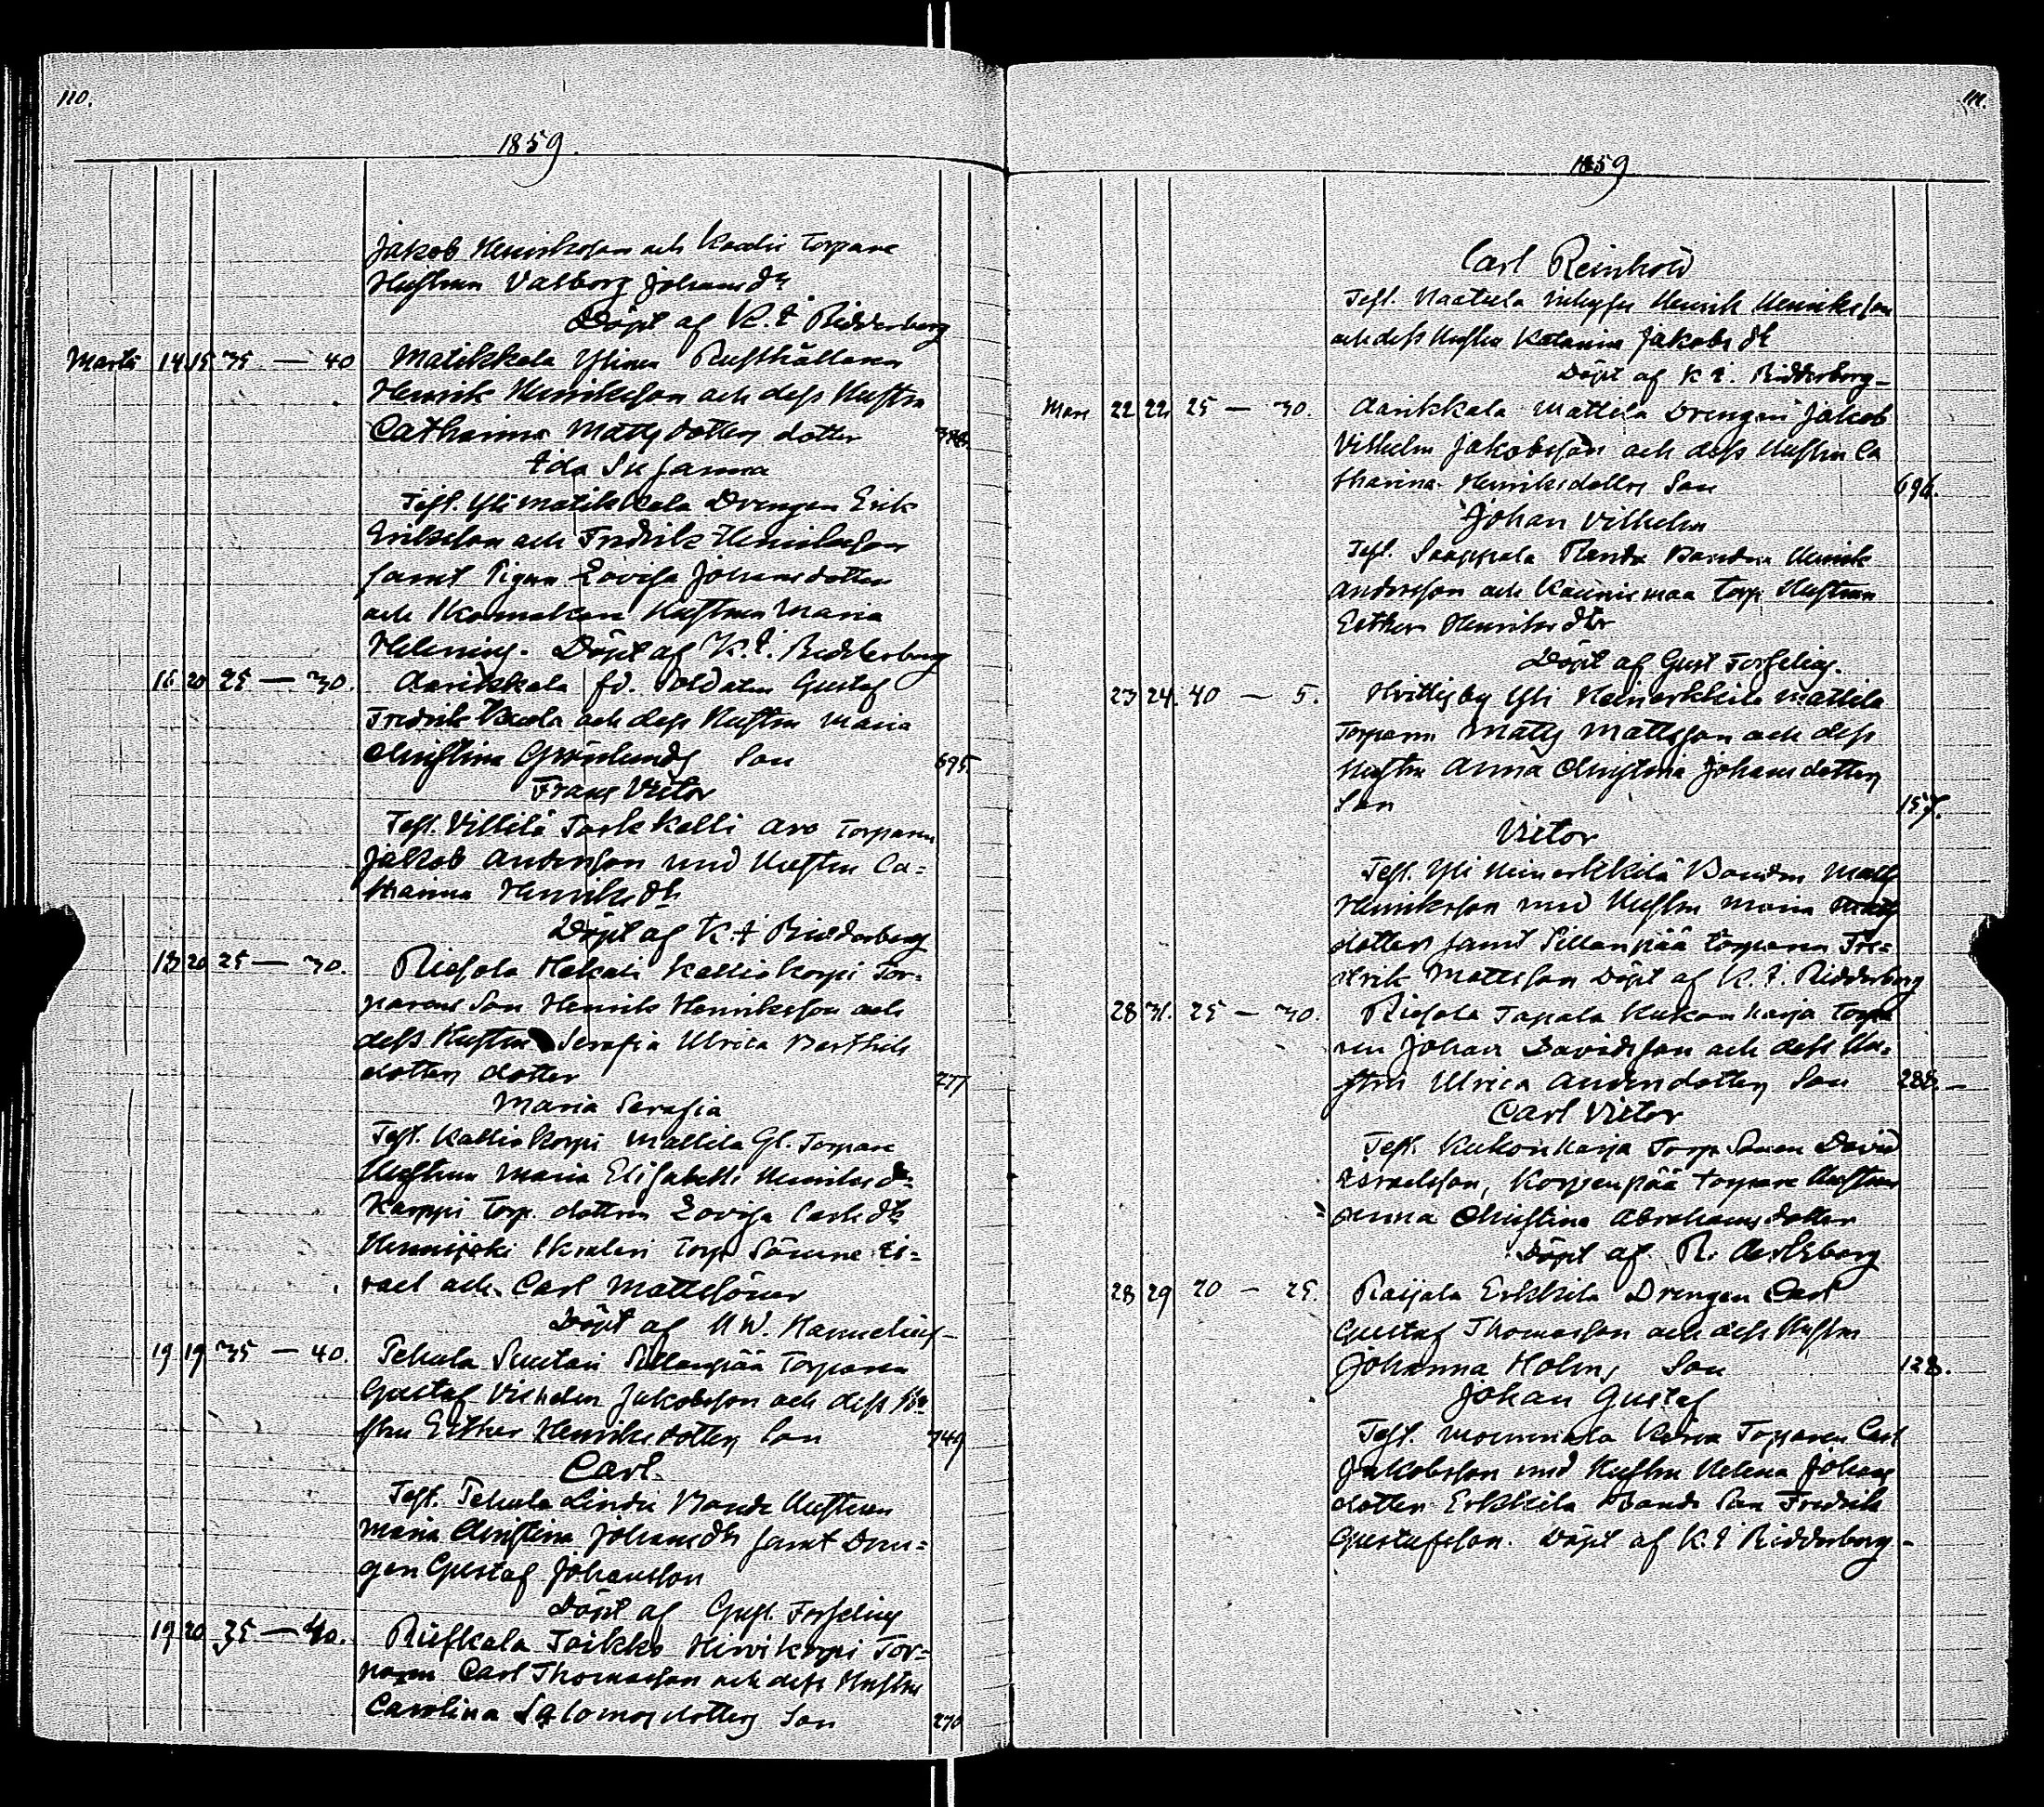 110.
1859.
Jakob Henriksson och Torpare
Hustrun Valborg Johansdr
Döpt af K. E. Ridderberg
Martii 14 15 35 — 40 Matikkala Ylinen Rusthållaren
Henrik Henriksson och dess Hustru
Catharina Matts dotters dotter
Ida Susanna
Test. Yli Matikkala Drengen Erik
Eriksson och Fredrik Henriksson
samt Pigan Lovisa Johansdotter
och Hustrun Maria
Helenius. Döpt af K. E. Ridderberg
16 20 25 — 30. Aarikkala fd. Soldaten Gustaf
Fredrik och dess Hustru Maria
Christina Grönlunds Son 695.
Frans Victor
Test. Villilä Torkkelli Aro Torparen
Jakob Andersson med Hustru Ca=
tharina Henriksdr
Döpt af K. E. Ridderberg
18 20 25 — 30. Riesola Hakali Kalliokorpi Tor=
parens Son Henrik Henriksson och
dess Hustru Serafia Ulrica Berthils
dotters dotter 277
Maria Serafia
Test. Kalliokorpi Mattila Gl. Torpare
Hustrun Maria Elisabeth Henriksdr
Karppi Torp. dottren Lovisa Carlsdr
Torp. Sönerne Is=
rael och Carl Mattssöner
Döpt af H W. Hannelius
19 19 35 — 40. Pehula Suutari Sillanpää Torparen
Gustaf Vilhelm Jakobsson och dess Hu=
stru Esther Henriksdotters Son 744
Carl.
Test. Pehula Lindu Bonde Hustrun
Maria Christina Johansdr samt Dren=
gen Gustaf Johansson
Döpt af Gust. Forselius
19 20 35 — 40. Ruskala Toikko Hirvikorpi Tor=
paren Carl Thomasson och dess Hustru
Carolina Salomons dotters Son 270
111.
1859
Carl Reinhold
Test. Naatula Inhyses Henrik Henriksson
och dess Hustru Katarina Jakobs dr
Döpt af K. E. Ridderberg
Mars 22 22 25 — 30. Aarikkala Mattila Drengen Jakob
Vilhelm Jakobsson och dess Hustru Ca
tharina Henriksdotters Son 696.
Johan Vilhelm
Test. Saappala Bonden Henrik
Andersson och Kaunismaa Torp. Hustrun
Esther Henriks dtr
Döpt af Gust Forselius.
23 24. 40 — 5. Hvittisby Yli Heinerkkilä Mattila
Torparen Matts Mattsson och dess
Hustru Anna Christina Johansdotters
Son 157.
Victor
Test. Yli Heinerkkilä Bonden Matts
Henriksson med Hustru Maria Matts
dotter samt Sillanpää Torparen Fre=
drik Mattsson Döpt af K. E. Ridderberg
28 31. 25 — 30. Riesola Tapala Kukonharja Torpa
ren Johan Davidsson och dess Hu=
stru Ulrica Andersdotters Son 288.
Carl Victor
Test. Kukonharja Torp Sonen David
Israelsson, Korpenpää Torpare Hustrun
Anna Christina Abrahamsdotter
Döpt af R.
28 29 20 — 25. Raijala Erkkilä Drengen Carl
Gustaf Thomasson och dess Hustru
Johanna Holms Son 128.
Johan Gustaf
Test. Mommola Torparen Carl
Jakobsson med Hustru Helena Johans
dotter Erkkilä Bonde Son Fredrik
Gustafsson. Döpt af K. E Ridderberg